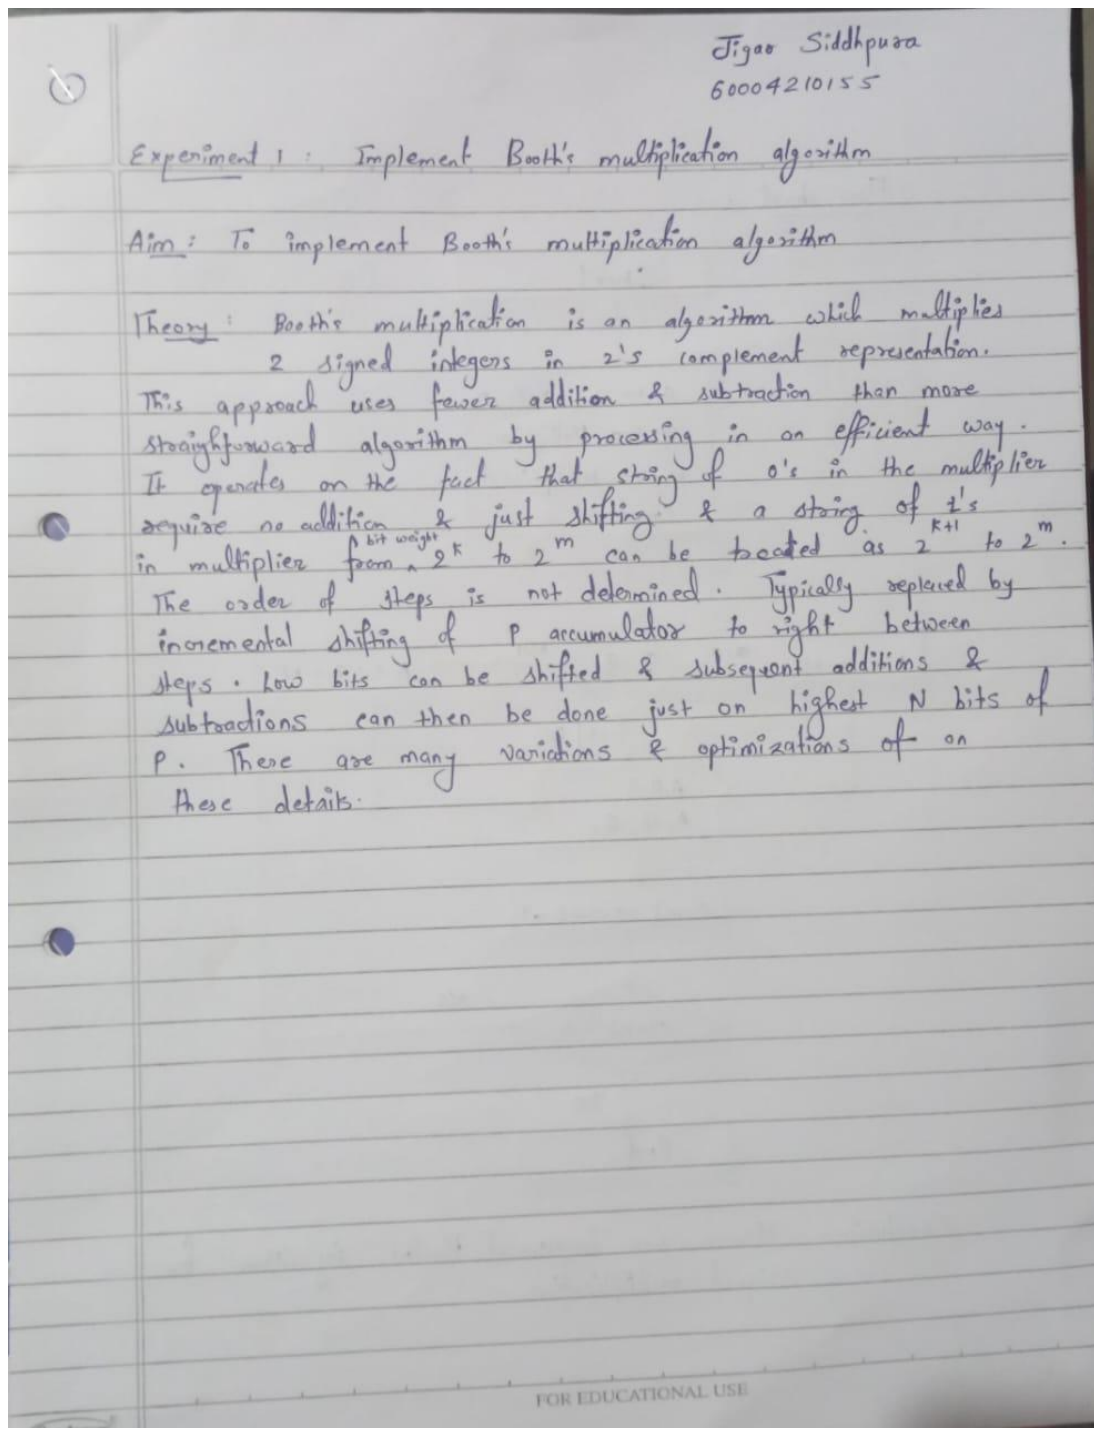 Jigar Siddhpura
60004210155
Experiment 1 : Implement Booth's multiplication algorithm
Aim : To implement Booth's multiplication algorithm
Theory : Booth's multiplication is an algorithm which multiplies
2 signed integers in 2's complement representation.
This approach uses fewer addition & subtraction than more
straighforward algorithm by processing in an efficient way.
It operates on the fact that string of 0's in the multiplier
require no addition & just shifting & a string of 1's
in multiplier from bit weight 2^k to 2^m can be treated as 2^k+1 to 2^m.
The order of steps is not determined. Typically replaced by
incremental shifting of P accumulator to right between
steps. Low bits can be shifted & subsequent additions &
subtractions can then be done just on highest N bits of
P. There are many variations & optimizations of on
these details.
FOR EDUCATIONAL USE